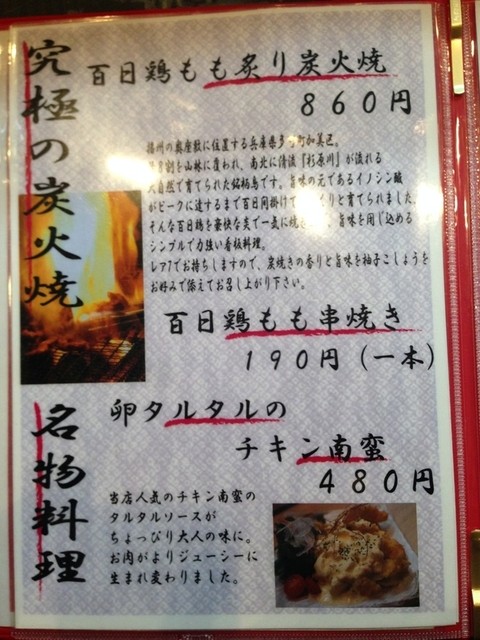 究極の炭火焼
百日鶏もも炙り炭火焼
860円
播州の奥座敷に位置する兵庫県多 町加美区。
8割を山林に覆われ、南北に清流『杉原川』が流れる
大自然で育てられた銘柄鳥です。旨味の元であるイノシン酸
がピークに達するまで百日間掛けて くりと育てられました。
そんな百日鶏を豪快な炎で一気に焼き 旨味を閉じ込める
シンプルで力強い看板料理。
レアでお持ちしますので、炭焼きの香りと旨味を柚子こしょうを
お好みで添えてお召し上がり下さい。
百日鶏もも串焼き
190円(一本)
名物料理
卵タルタルの
チキン南蛮
480円
当店人気のチキン南蛮の
タルタルソースが
ちょっぴり大人の味に。
お肉がよりジューシーに
生まれ変わりました。